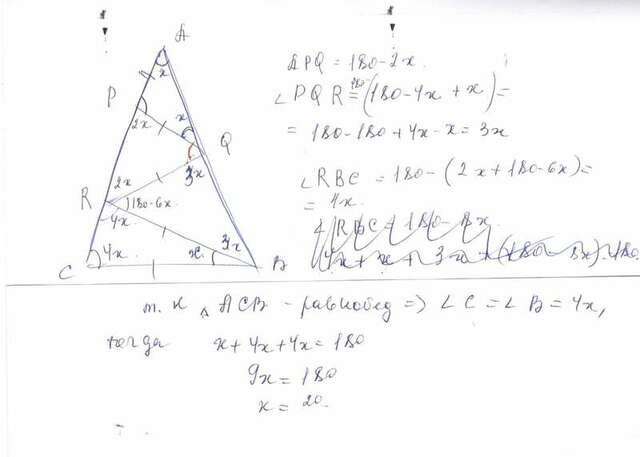 A
x
P
2x
x
Q
3x
R
2x
180-6x
4x
4x
3x
x
C
B
APQ = 180-2x.
∠PQR = 180-(180-4x+x)=
= 180-180+4x-x = 3x
∠RBC = 180-(2x+180-6x)=
= 4x.
т.к △ ACB - равнобед => ∠C = ∠B = 4x,
тогда x+4x+4x=180
9x = 180
x = 20.